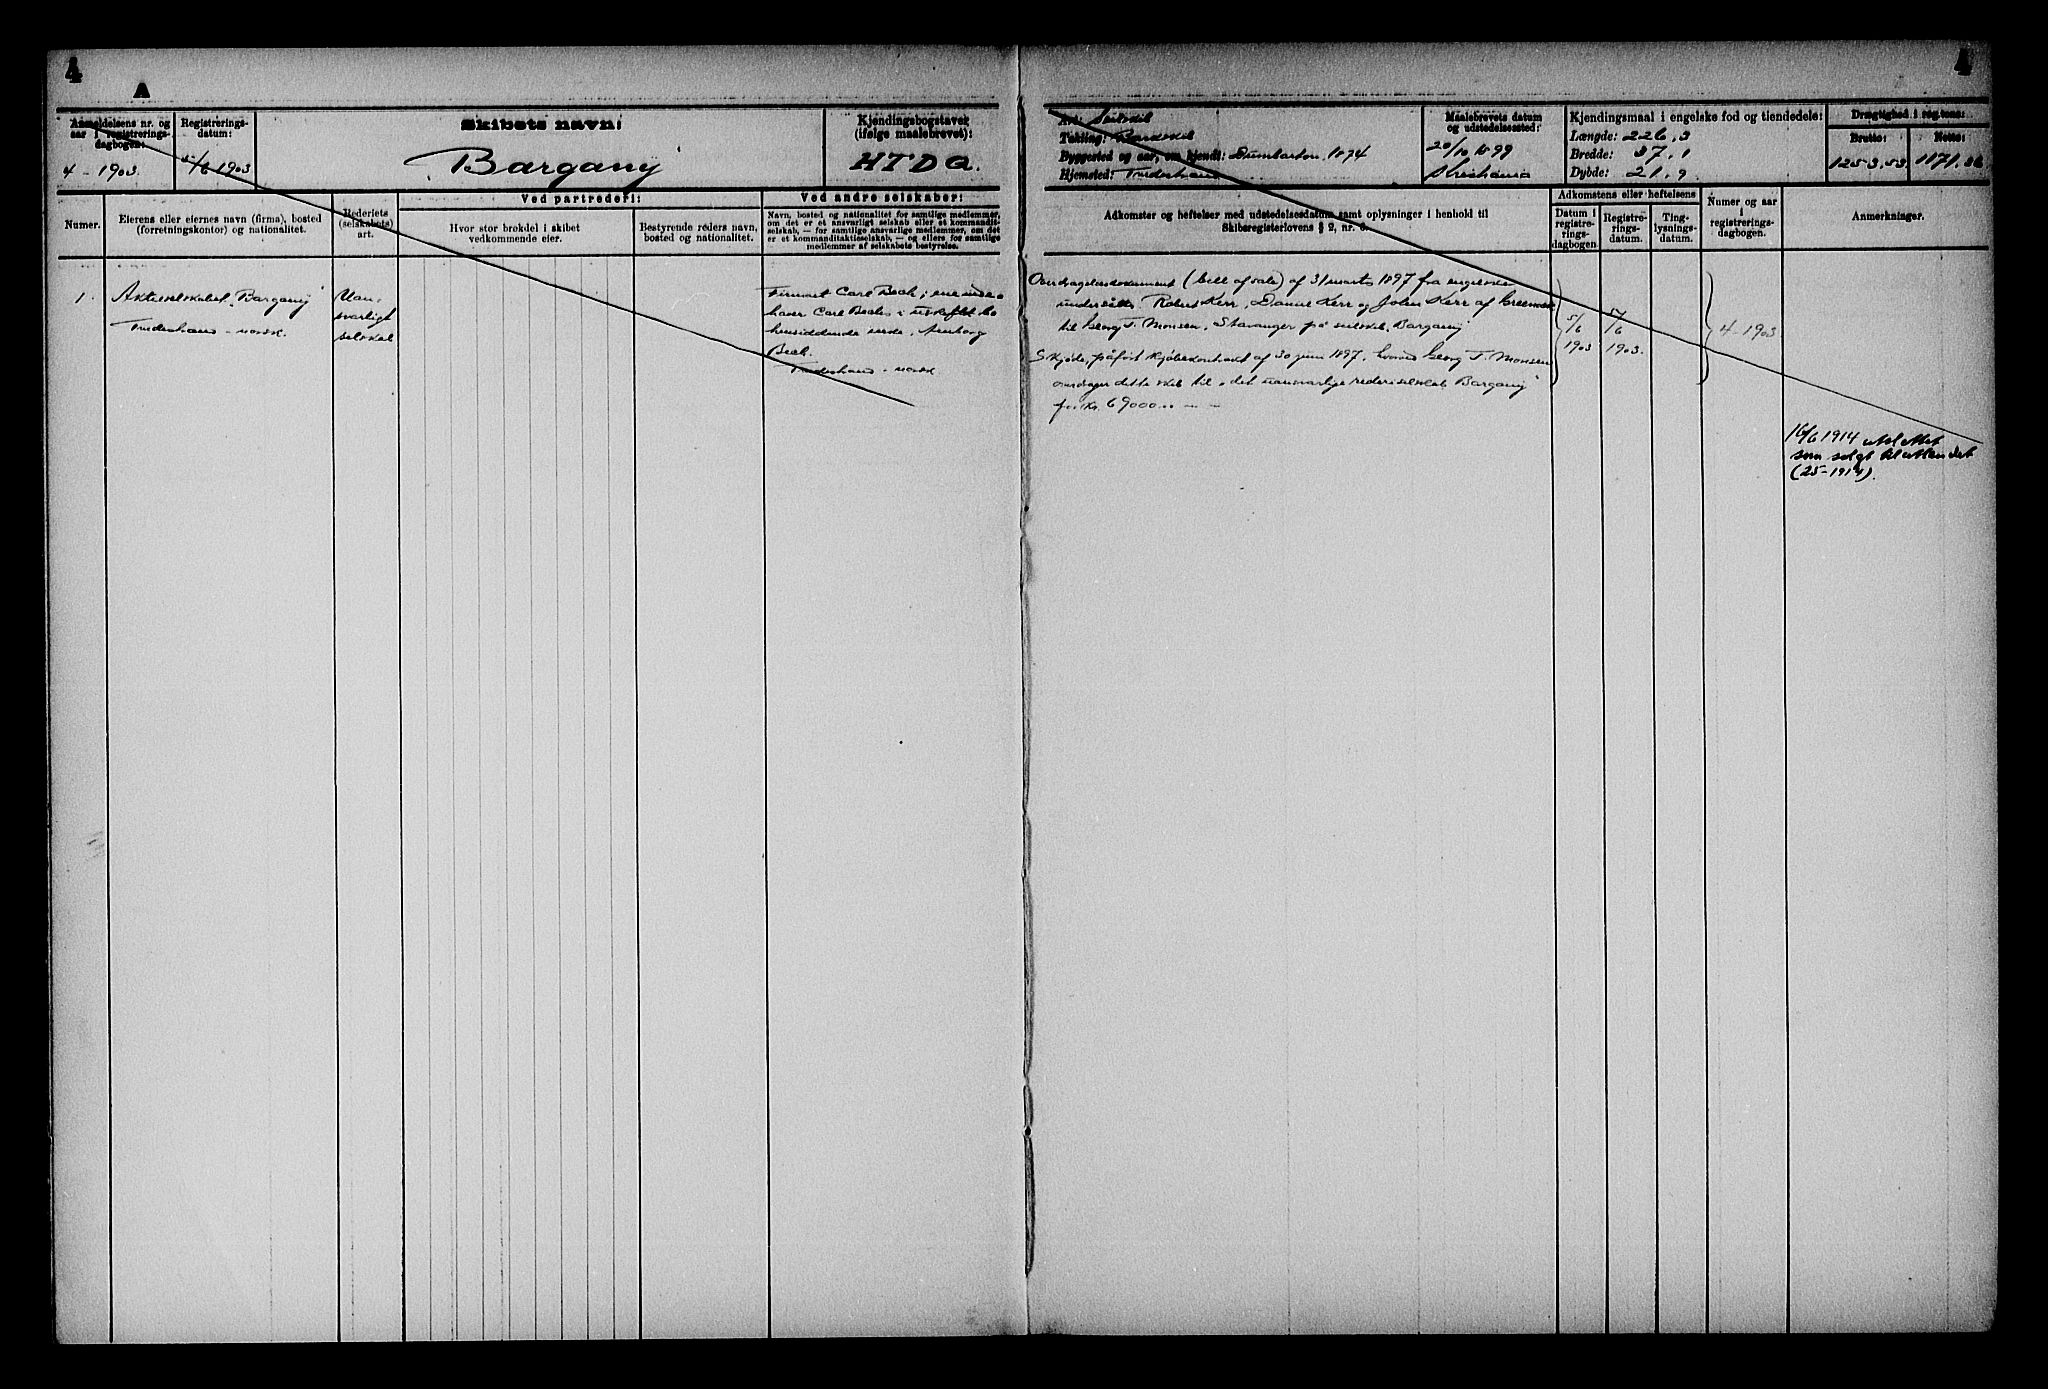 4
A
Anmeldelsens nr. og
aar i registrerings-
dagbogen:
4 - 1903.
Registrerings-
datum:
5/6 1903
Skibets navn:
Bargany
Kjendingsbogstaver
(ifølge maalebrevet):
HTDG.
Numer.
Eierens eller eiernes navn (firma), bosted
(forretningskontor) og nationalitet.
Rederiets
(selskabets)
art.
Ved partrederi:
Hvor stor brøkdel i skibet
vedkommende eier.
Bestyrende reders navn,
bosted og nationalitet.
Ved andre selskaber:
Navn, bosted og nationalitet for samtlige medlemmer,
om det er et ansvarligt selskab eller et kommandit-
selskab, — for samtlige ansvarlige medlemmer, om det
er et kommanditaktieselskab, — og ellers for samtlige
medlemmer af selskabets bestyrelse.
1.
Aktieselskabet "Bargany"
Tvedestrand - norsk.
Uan-
svarligt
selskab
Firmaet Carl Bech; eneinde-
haver Carl Bechs i uskiftet bo
hensiddende enke,
Bech.
Tvedestrand - norsk
4
Art: Seilskib
Takling: Barkskib
Byggested og aar, om kjendt: Dumbarton 1874
Hjemsted: Tvedestrand
Maalebrevets datum
og udstedelsessted:
20/10 1899
Kristiania
Kjendingsmaal i engelske fod og tiendedele:
Længde: 226,3
Bredde: 37,1
Dybde: 21,9
Drægtighed i reg.tons:
Brutto:
1253.53
Netto:
1171.86
Adkomster og heftelser med udstedelsesdatum samt oplysninger i henhold til
Skibsregisterlovens § 2, nr. 6.
Adkomstens eller heftelsens
Datum i
registre-
rings-
dagbogen
Registre-
rings-
datum.
Ting-
lysnings-
datum.
Numer og aar
i
registrerings-
dagbogen.
Anmerkninger.
Overdragelsesdokument (bill of sale) af 31 marts 1897 fra engelske
undersåtter Robert Kerr, Daniel Kerr og John Kerr af Greenock
til Georg T. Monsen, Stavanger på seilskib "Bargany"
Skjøde, påført kjøbekontrakt af 30 juni 1897, hvorved Georg T. Monsen
overdrager dette skib til "det uansvarlige rederiselskab Bargany"
for kr. 69000.. — —
5/6
1903
5/6
1903.
4 - 1903
16/6 1914 udslettet
som solgt til utlandet
(25-1914).